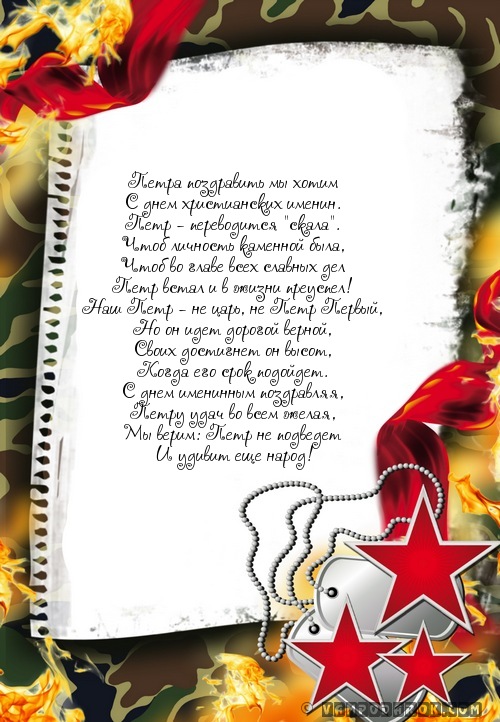 Петра поздравить мы хотим
С днем христианских именин.
Петр - переводится "скала".
Чтоб личность каменной была,
Чтоб во главе всех славных дел
Петр встал и в жизни преуспел!
Наш Петр - не царь, не Петр Первый,
Но он идет дорогой верной,
Своих достигнет он высот,
Когда его срок подойдет.
С днем именинным поздравляя,
Петру удач во всем желая,
Мы верим: Петр не подведет
И удивит еще народ!
© VAMPODAROK.COM